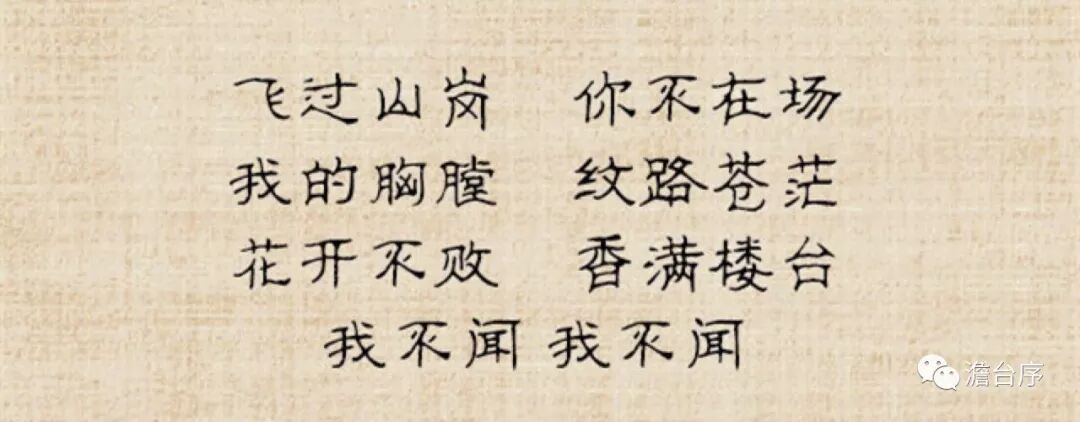 飞过山岗 你不在场
我的胸膛 纹路苍茫
花开不败 香满楼台
我不闻 我不闻
澹台序